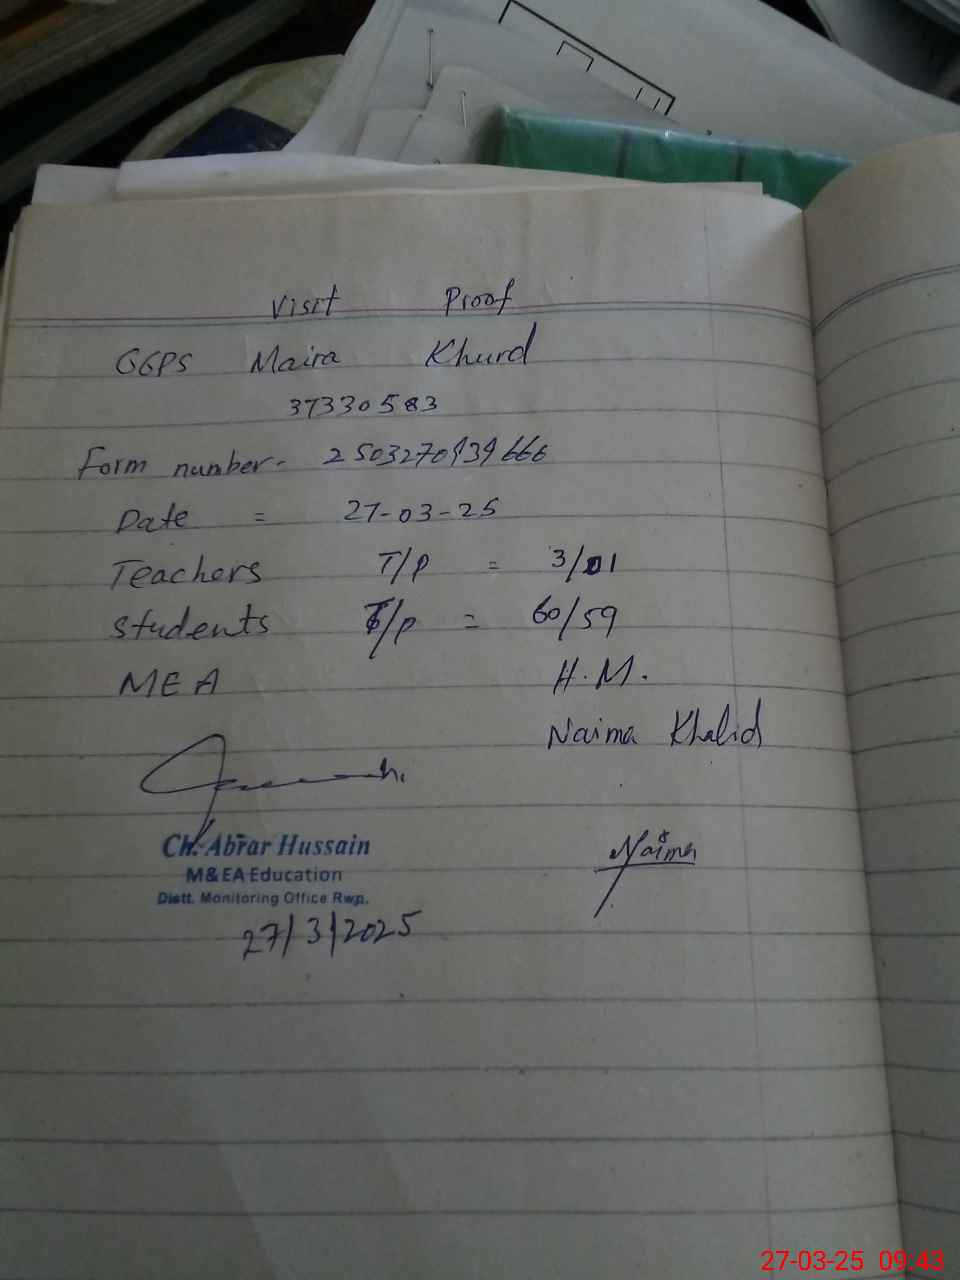 Visit Proof
GGPS Maira Khurd
37330583
Form number- 2503270939666
Date = 27-03-25
Teachers T/P = 3/01
Students T/P = 60/59
MEA H.M.
Naima Khalid
Ch. Abrar Hussain
M&EA Education
Distt. Monitoring Office Rwp.
Naima
27/3/2025
27-03-25 09:43